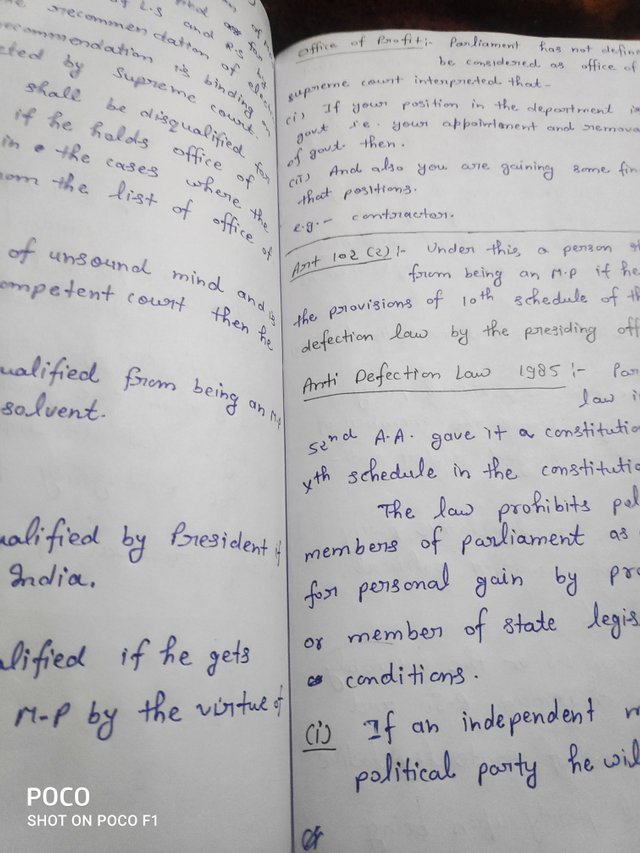 of L.S and R.S
recommendation of
recommendation is binding
by Supreme court.
shall be disqualified for
if he holds office of
in the cases where the
the list of office of
of unsound mind and is
competent court then he
from being an M.P
solvent.
by President of
India.
if he gets
M-P by the virtue of
office of Profit:- Parliament has not
be considered as office of
supreme court interpreted that-
(i) If your position in the department
govt i.e. your appointment and
of govt. then.
(ii) And also you are gaining some
that positions.
e.g.- contractor.
Art 102 (2):- Under this, a person
from being an M.P if he
the provisions of 10th schedule of
defection law by the presiding
Anti Defection Law 1985 :-
law
52nd A.A. gave it a
Xth schedule in the
The law prohibits
members of parliament as
for personal gain by
or member of state
conditions.
(i) If an independent
political party he
POCO
SHOT ON POCO F1